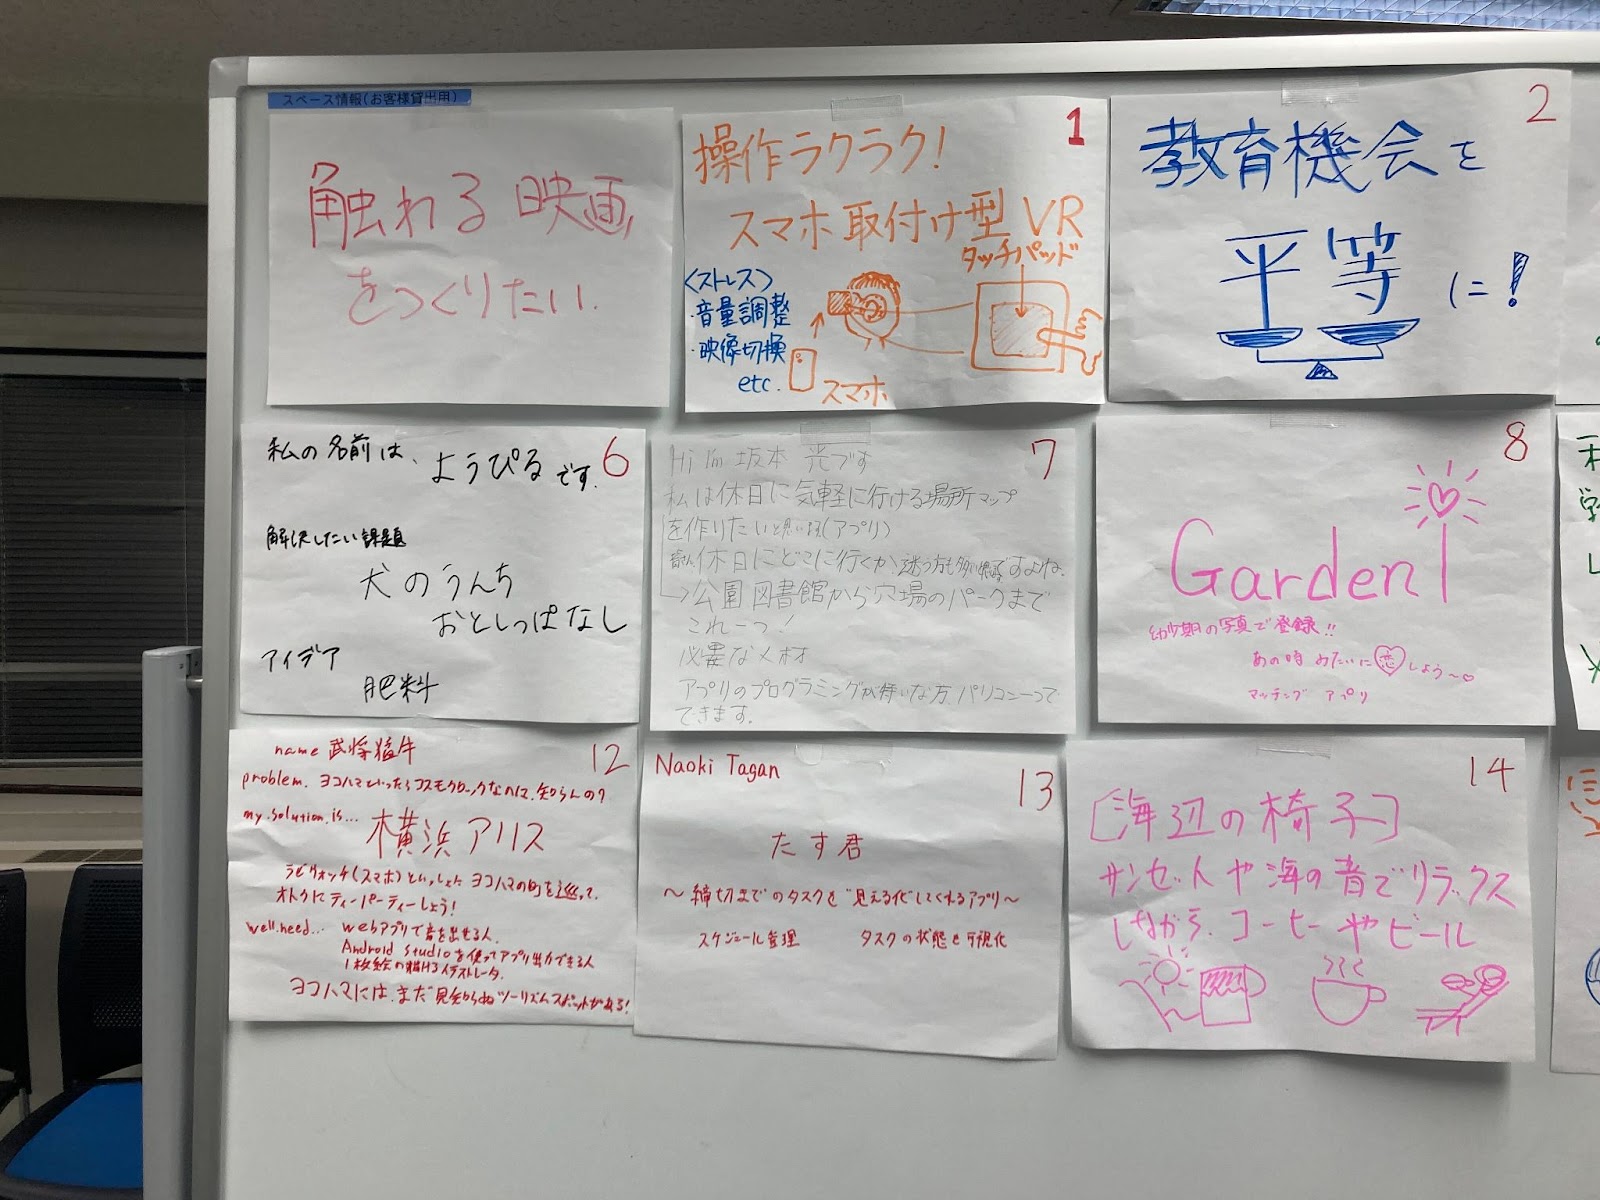 スペース情報(お客様貸出用)
触れる映画
をつくりたい.
1
操作ラクラク!
スマホ取付け型VR
タッチパッド
<ストレス>
・音量調整
・映像切換
etc.
スマホ
2
教育機会を
平等に!
6
私の名前は、ようぴるです.
解決したい課題
犬のうんち
おとしっぱなし
アイデア
肥料
7
Hi I'm 坂本 光です
私は休日に気軽に行ける場所マップ
を作りたいと思います(アプリ)
休日にどこに行くか迷う方も多い
ですよね.
→公園図書館から穴場のパークまで
これ一つ!
必要な人材
アプリのプログラミングが得いな方.パソコン一つで
できます.
8
Garden
幼少期の写真で登録!!
あの時みたいに恋しよう〜♡
マッチングアプリ
12
name 武将猛牛
problem. ヨコハマといったらコスモクロックなのに、知らんの?
my solution is...
横浜アリス
ラビウォッチ(スマホ)といっしょにヨコハマの町を巡って、
オトクにティーパーティーしよう!
well need... webアプリで音を出せる人.
Android Studioを使ってアプリ出力できる人
1枚絵の描けるイラストレータ.
ヨコハマには、まだ見知らぬツーリズムスポットがある!
13
Naoki Tagan
たす君
〜締切までのタスクを"見える化"してくれるアプリ〜
スケジュール管理 タスクの状態を可視化
14
[海辺の椅子]
サンセットや海の音でリラックス
しながら、コーヒーやビール